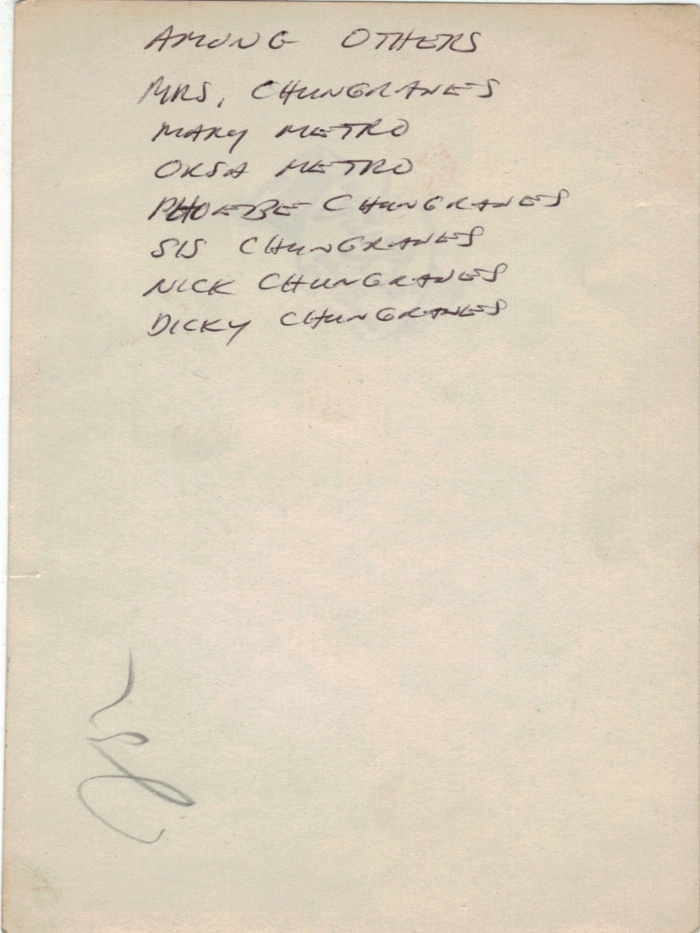 AMONG OTHERS
MRS. CHUNGRANES
MARY METRO
OKSA METRO
PHOEBE CHUNGRANES
SIS CHUNGRANES
NICK CHUNGRANES
DICKY CHUNGRANES